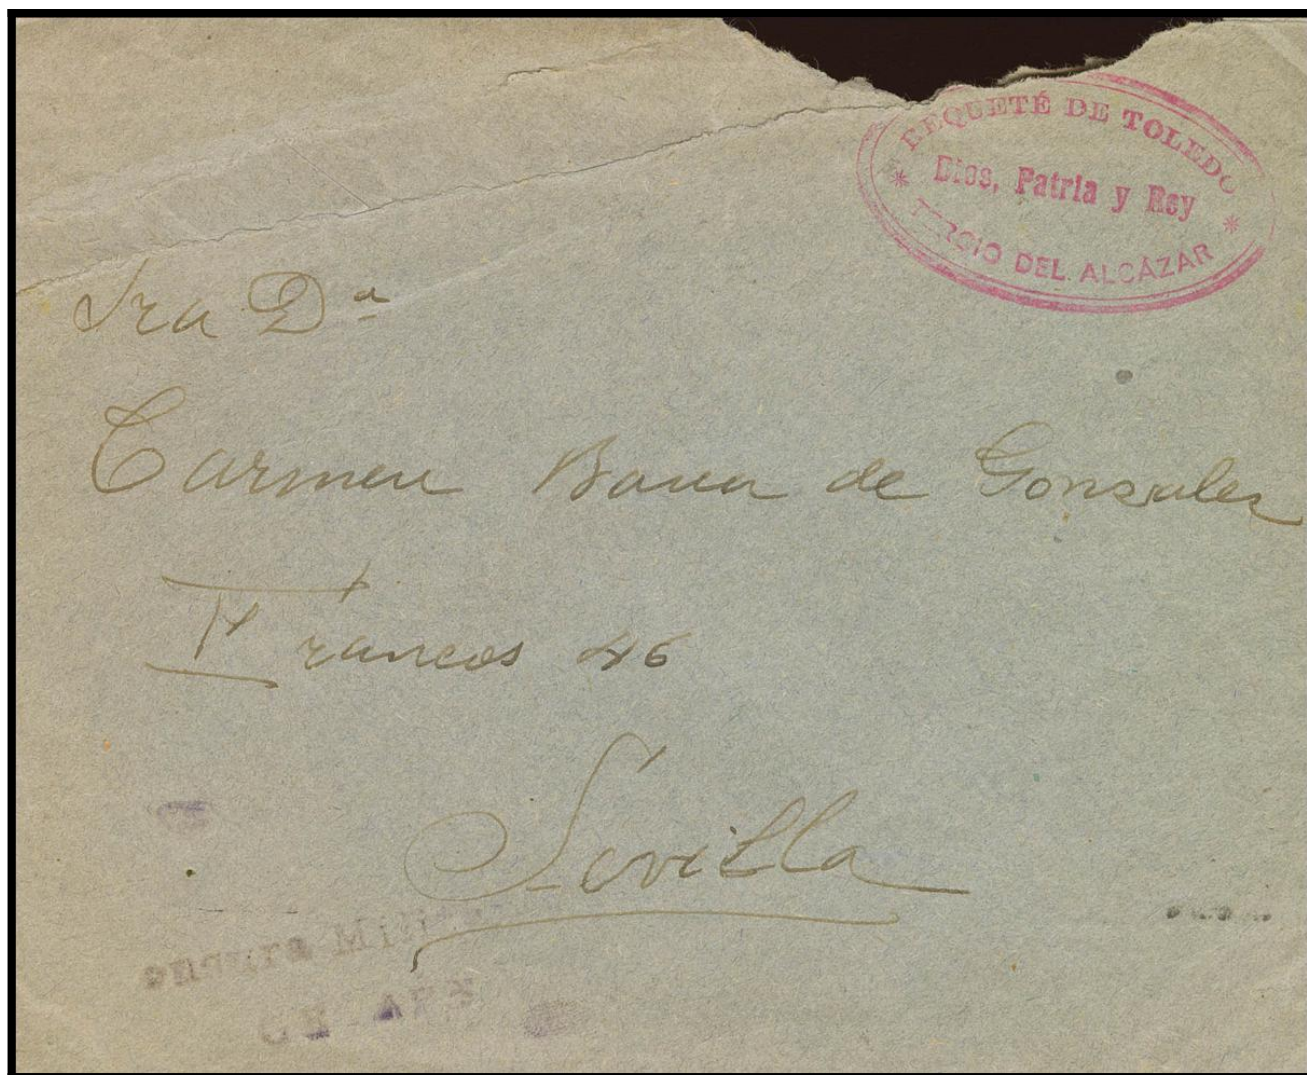 REQUETÉ DE TOLEDO
Dios, Patria y Rey
TERCIO DEL ALCÁZAR
Sra Dª
Carmen de Gonzales
Francos 46
Sevilla